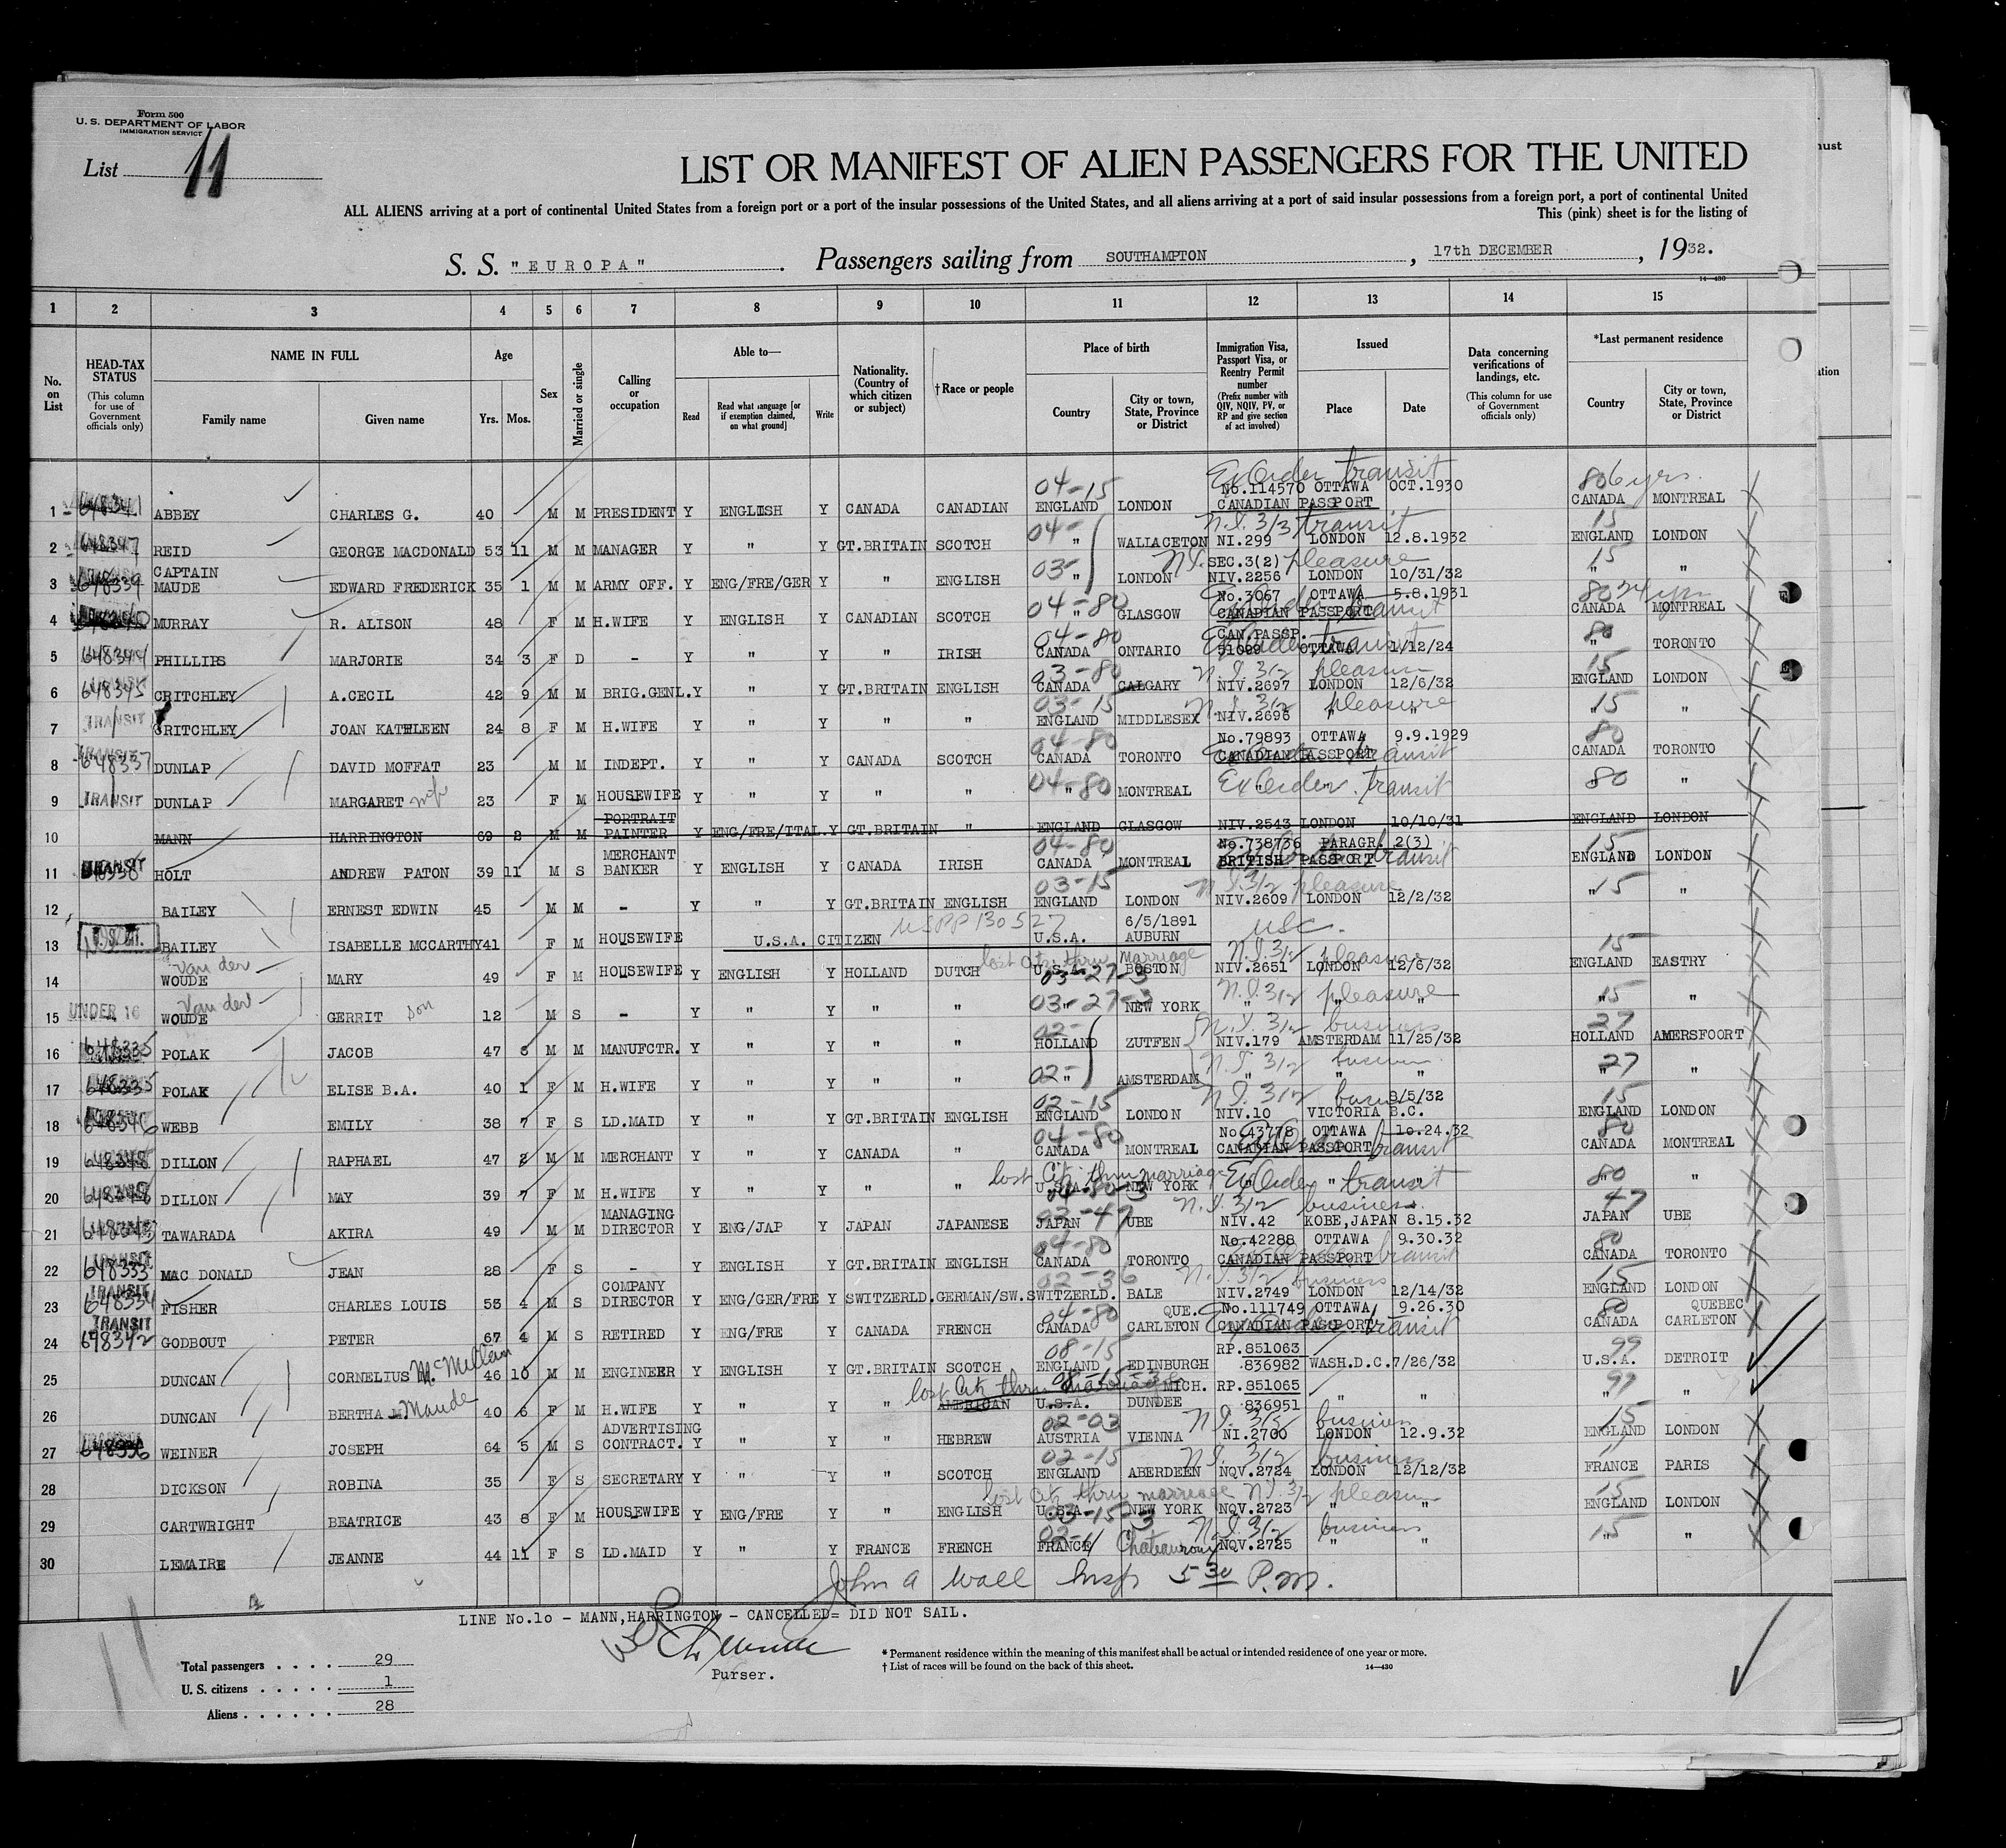 Form 500
U. S. DEPARTMENT OF LABOR
IMMIGRATION SERVICE
List 11
LIST OR MANIFEST OF ALIEN PASSENGERS FOR THE UNITED
ALL ALIENS arriving at a port of continental United States from a foreign port or a port of the insular possessions of the United States, and all aliens arriving at a port of said insular possessions from a foreign port, a port of continental United
This (pink) sheet is for the listing of
S. S. "EUROPA". Passengers sailing from SOUTHAMPTON, 17th DECEMBER, 1932.
14—430
1 2 3 4 5 6 7 8 9 10 11 12 13 14 15
No. on List
HEAD-TAX STATUS (This column for use of Government officials only)
NAME IN FULL Family name Given name
Age Yrs. Mos.
Sex
Married or single
Calling or occupation
Able to— Read Read what language [or if exemption claimed, on what ground] Write
Nationality. (Country of which citizen or subject)
†Race or people
Place of birth Country City or town, State, Province or District
Immigration Visa, Passport Visa, or Reentry Permit number (Prefix number with QIV, NQIV, PV, or RP and give section of act involved)
Issued Place Date
Data concerning verifications of landings, etc. (This column for use of Government officials only)
*Last permanent residence Country City or town, State, Province or District
04-15 Ex Order transit 80 6 yrs.
1 648341 ABBEY CHARLES G. 40 M M PRESIDENT Y ENGLISH Y CANADA CANADIAN ENGLAND LONDON No.114570 OTTAWA OCT.1930 CANADIAN PASSPORT CANADA MONTREAL
04- N.I. 3/3 transit 15
2 648347 REID GEORGE MACDONALD 53 11 M M MANAGER Y " Y GT.BRITAIN SCOTCH " WALLACETON NI.299 LONDON 12.8.1932 ENGLAND LONDON
03- N.I. SEC.3(2) pleasure 15
3 648339 CAPTAIN MAUDE EDWARD FREDERICK 35 1 M M ARMY OFF. Y ENG/FRE/GER Y " ENGLISH " LONDON NIV.2256 LONDON 10/31/32 " "
04-80 Ex Order transit 80 34 yrs
4 MURRAY R. ALISON 48 F M H.WIFE Y ENGLISH Y CANADIAN SCOTCH " GLASGOW No.3067 OTTAWA 5.8.1931 CANADIAN PASSPORT CANADA MONTREAL
04-80 Ex Order transit 80
5 648344 PHILLIPS MARJORIE 34 3 F D - Y " Y " IRISH CANADA ONTARIO CAN.PASSP. 51099 OTTAWA 1/12/24 " TORONTO
03-80 N.I. 3/2 pleasure 15
6 648345 CRITCHLEY A.CECIL 42 9 M M BRIG.GENL. Y " Y GT.BRITAIN ENGLISH CANADA CALGARY NIV.2697 LONDON 12/6/32 ENGLAND LONDON
03-15 N.I. 3/2 pleasure 15
7 TRANSIT CRITCHLEY JOAN KATHLEEN 24 8 F M H.WIFE Y " Y " " ENGLAND MIDDLESEX NIV.2696 " " " "
04-80 Ex Order transit 80
8 TRANSIT 648337 DUNLAP DAVID MOFFAT 23 M M INDEPT. Y " Y CANADA SCOTCH CANADA TORONTO No.79893 OTTAWA 9.9.1929 CANADIAN PASSPORT CANADA TORONTO
9 TRANSIT DUNLAP MARGARET wife 23 F M HOUSEWIFE Y " Y " " 04-80 " MONTREAL Ex Order transit 80 "
10 MANN HARRINGTON 69 2 M M PORTRAIT PAINTER Y ENG/FRE/ITAL. Y GT.BRITAIN " ENGLAND GLASGOW NIV.2543 LONDON 10/10/31 ENGLAND LONDON
04-80 transit 15
11 TRANSIT HOLT ANDREW PATON 39 11 M S MERCHANT BANKER Y ENGLISH Y CANADA IRISH CANADA MONTREAL No.738736 PARAGR. 2(3) BRITISH PASSPORT ENGLAND LONDON
03-15 N.I. 3/2 pleasure 15
12 BAILEY ERNEST EDWIN 45 M M - Y " Y GT.BRITAIN ENGLISH ENGLAND LONDON NIV.2609 LONDON 12/2/32 " "
USPP 130527 USC.
13 BAILEY ISABELLE MCCARTHY 41 F M HOUSEWIFE U.S.A. CITIZEN U.S.A. 6/5/1891 AUBURN
lost citz thru marriage N.I. 3/2 pleasure 15
14 Van der WOUDE MARY 49 F M HOUSEWIFE Y ENGLISH Y HOLLAND DUTCH U.S.A. BOSTON 03-27-3 NIV.2651 LONDON 12/6/32 ENGLAND EASTRY
15 UNDER 16 Van der WOUDE GERRIT son 12 M S - Y " Y " " 03-27-3 " NEW YORK N.I. 3/2 pleasure " 15 "
02- N.I. 3/2 business 27
16 648335 POLAK JACOB 47 8 M M MANUFCTR. Y " Y " " HOLLAND ZUTFEN NIV.179 AMSTERDAM 11/25/32 HOLLAND AMERSFOORT
17 648335 POLAK ELISE B.A. 40 1 F M H.WIFE Y " Y " " 02- " AMSTERDAM N.I. 3/2 business " " " 27 "
02-15 N.I. 3/2 15
18 648346 WEBB EMILY 38 7 F S LD.MAID Y " Y GT.BRITAIN ENGLISH ENGLAND LONDON NIV.10 VICTORIA B.C. 8/5/32 ENGLAND LONDON
04-80 Ex Order transit 80
19 648348 DILLON RAPHAEL 47 2 M M MERCHANT Y " Y CANADA " CANADA MONTREAL No.43778 OTTAWA 10.24.32 CANADIAN PASSPORT CANADA MONTREAL
lost Citz thru marriage Ex Order transit 80
20 648348 DILLON MAY 39 7 F M H.WIFE Y " Y " " U.S.A. NEW YORK 04-80-3 " " " " "
02-47 N.I. 3/2 business 47
21 648343 TAWARADA AKIRA 49 M M MANAGING DIRECTOR Y ENG/JAP Y JAPAN JAPANESE JAPAN UBE NIV.42 KOBE,JAPAN 8.15.32 JAPAN UBE
04-80 transit 80
22 TRANSIT 648333 MAC DONALD JEAN 28 F S - Y ENGLISH Y GT.BRITAIN ENGLISH CANADA TORONTO No.42288 OTTAWA 9.30.32 CANADIAN PASSPORT CANADA TORONTO
02-36 N.I. 3/2 business 15
23 TRANSIT 648334 FISHER CHARLES LOUIS 55 4 M S COMPANY DIRECTOR Y ENG/GER/FRE Y SWITZERLD. GERMAN/SW. SWITZERLD. BALE NIV.2749 LONDON 12/14/32 ENGLAND LONDON
04-80 Ex Order transit 80
24 TRANSIT 648342 GODBOUT PETER 67 4 M S RETIRED Y ENG/FRE Y CANADA FRENCH CANADA QUE. CARLETON No.111749 OTTAWA 9.26.30 CANADIAN PASSPORT CANADA QUEBEC CARLETON
08-15 99
25 DUNCAN CORNELIUS McMillan 46 10 M M ENGINEER Y ENGLISH Y GT.BRITAIN SCOTCH ENGLAND EDINBURGH RP.851063 836982 WASH.D.C. 7/26/32 U.S.A. DETROIT
lost Citz thru marriage 08-15-3 99
26 DUNCAN BERTHA Maude 40 6 F M H.WIFE Y " Y " AMERICAN U.S.A. MICH. DUNDEE RP.851065 836951 " " " "
02-03 N.I. 3/2 business 15
27 TRANSIT 648336 WEINER JOSEPH 64 5 M S ADVERTISING CONTRACT. Y " Y " HEBREW AUSTRIA VIENNA NI.2700 LONDON 12.9.32 ENGLAND LONDON
02-15 N.I. 3/2 business
28 DICKSON ROBINA 35 F S SECRETARY Y " Y " SCOTCH ENGLAND ABERDEEN NQV.2724 LONDON 12/12/32 FRANCE PARIS
lost citz thru marriage N.I. 3/2 pleasure 15
29 CARTWRIGHT BEATRICE 43 8 F M HOUSEWIFE Y ENG/FRE Y " ENGLISH U.S.A. NEW YORK 03-15-3 NQV.2723 " " ENGLAND LONDON
N.I. 3/2 business 15
30 LEMAIRE JEANNE 44 11 F S LD.MAID Y " Y FRANCE FRENCH FRANCE NQV.2725 " " " "
John A Wall Insp 5 30 P.M.
LINE No.10 - MANN,HARRINGTON - CANCELLED= DID NOT SAIL.
Purser.
Total passengers . . . . 29
U. S. citizens . . . . . 1
Aliens . . . . . . 28
* Permanent residence within the meaning of this manifest shall be actual or intended residence of one year or more.
† List of races will be found on the back of this sheet.
14—430